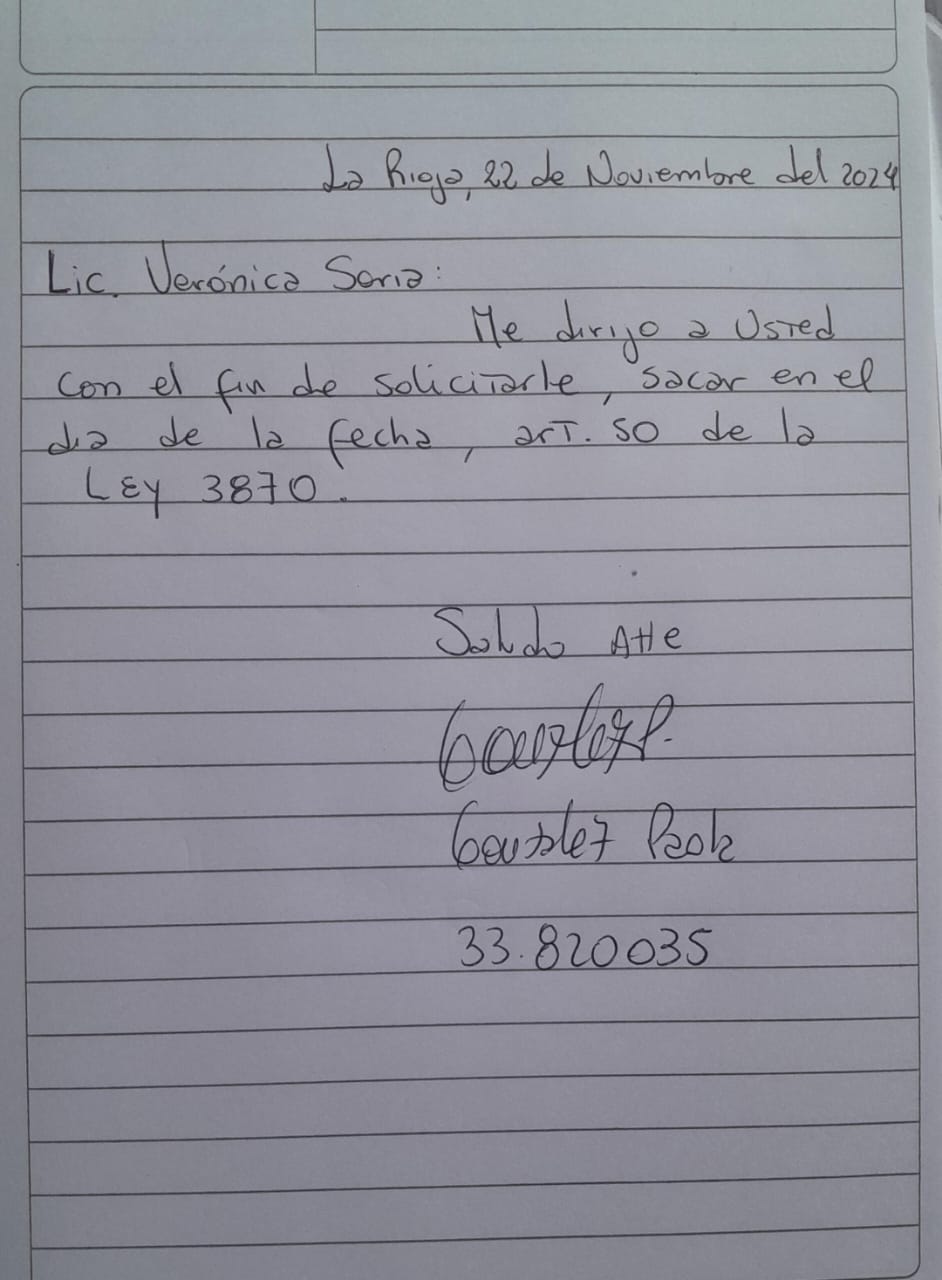 La Rioja, 22 de Noviembre del 2024
Lic. Verónica Soria:
Me dirijo a Usted
con el fin de solicitarle, sacar en el
dia de la fecha, art. 50 de la
Ley 3870.
Saludo Atte
Gonzlez P.
Gonzalez Paola
33.820035